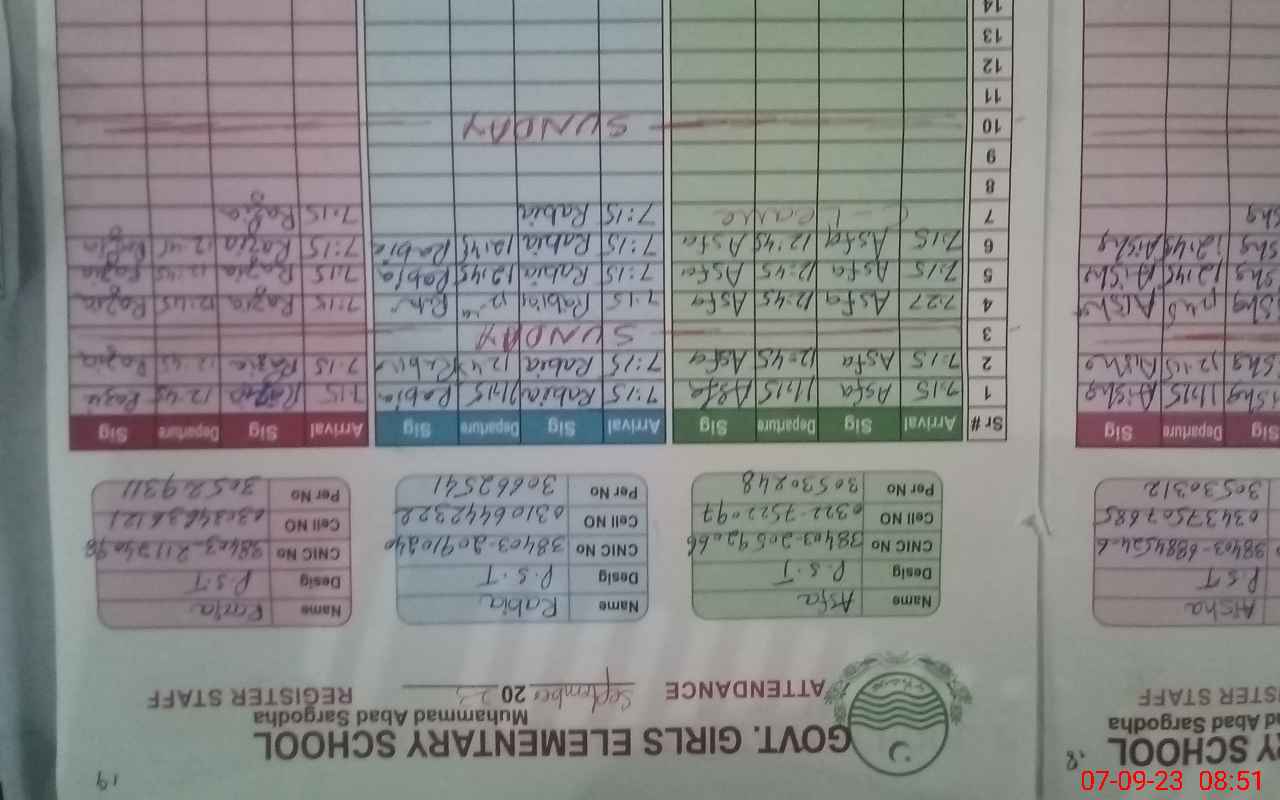 19
GOVT. GIRLS ELEMENTARY SCHOOL
Muhammad Abad Sargodha
ATTENDANCE September 2023 REGISTER STAFF
Name Asfa
Desig P.S.T
CNIC No
Cell NO 0322-7522097
Per No 30530248
Name Rabia
Desig P.S.T.
CNIC No 38403-20910240
Cell NO 03106442322
Per No 30662541
Name Razia
Desig P.S.T
CNIC No
Cell NO
Per No 30529311
Sr # Arrival Sig Departure Sig Arrival Sig Departure Sig Arrival Sig Departure Sig
1 7:15 Asfa 11:15 Asfa 7:15 Rabia 11:15 Rabia 7:15 Razia 12:45 Razia
2 7:15 Asfa 12:45 Asfa 7:15 Rabia 12:45 Rabia 7:15 Razia 12:45 Razia
3 SUNDAY
4 7:27 Asfa 12:45 Asfa 7:15 Rabia 7:15 Razia 12:45 Razia
5 7:15 Asfa 12:45 Asfa 7:15 Rabia 12:45 Rabia 7:15 Razia 12:45 Razia
6 7:15 Asfa 12:45 Asfa 7:15 Rabia 12:45 Rabia 7:15 Razia 12:45 Razia
7 Leave 7:15 Rabia 7:15 Razia
8
9
10 SUNDAY
11
12
13
14
18
RY SCHOOL
d Abad Sargodha
STER STAFF
Aisha
P.S.T
38403-6884524-6
03437507685
30530312
Sig Departure Sig
11:15 Aisha
12:45 Aisha
Aisha
12:45 Aisha
12:45 Aisha
07-09-23 08:51